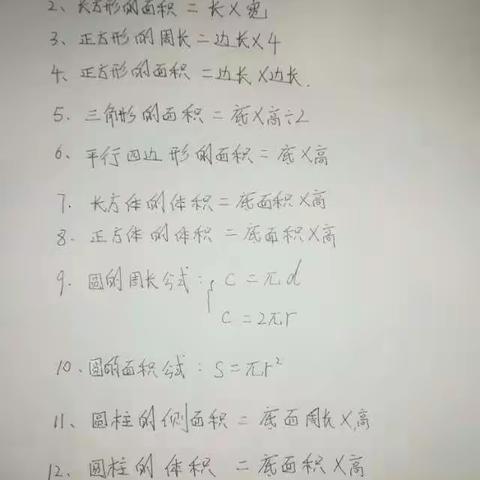 2、长方形的面积=长×宽
3、正方形的周长=边长×4
4、正方形的面积=边长×边长.
5、三角形的面积=底×高÷2
6、平行四边形的面积=底×高
7、长方体的体积=底面积×高
8、正方体的体积=底面积×高
9、圆的周长公式:{C=πd
C=2πr
10、圆的面积公式:S=πr²
11、圆柱的侧面积=底面周长×高
12、圆柱的体积=底面积×高